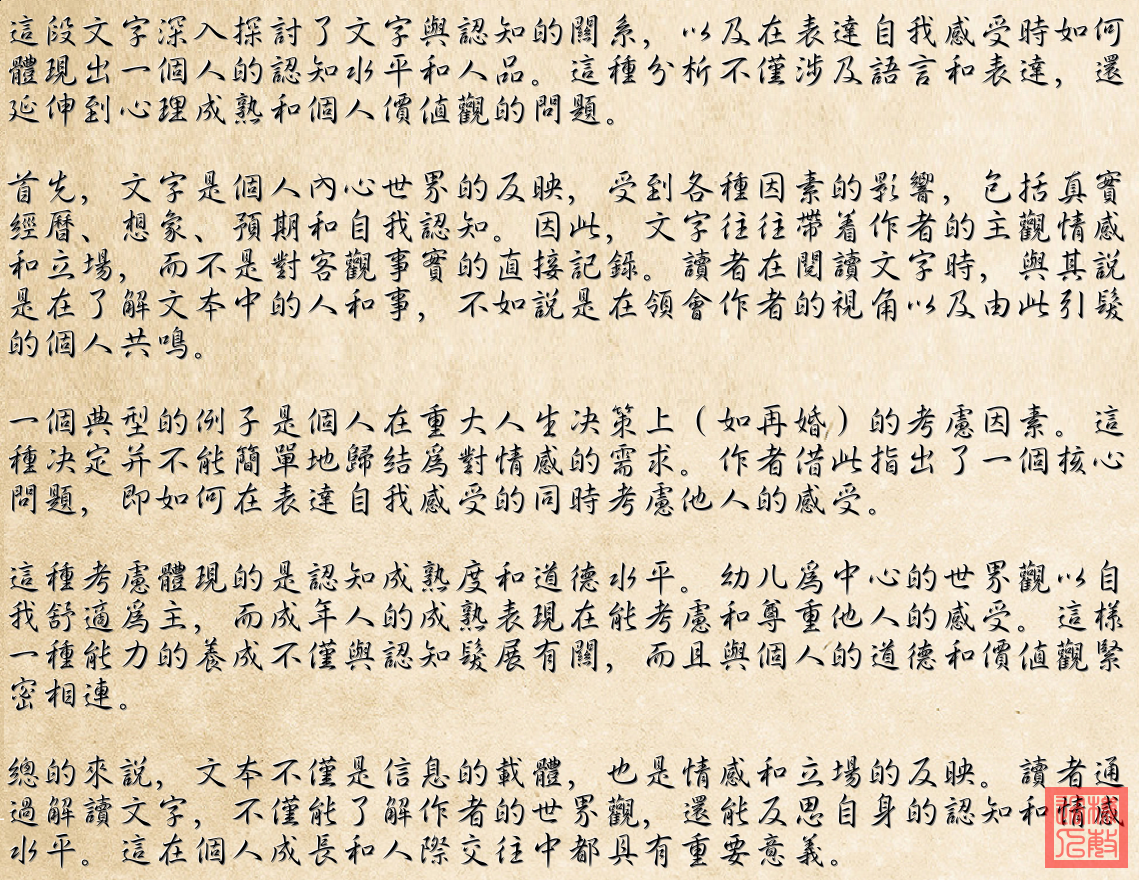 這段文字深入探討了文字與認知的關系，以及在表達自我感受時如何
體現出一個人的認知水平和人品。這種分析不僅涉及語言和表達，還
延伸到心理成熟和個人價值觀的問題。
首先，文字是個人內心世界的反映，受到各種因素的影響，包括真實
經曆、想象、預期和自我認知。因此，文字往往帶着作者的主觀情感
和立場，而不是對客觀事實的直接記錄。讀者在閱讀文字時，與其說
是在了解文本中的人和事，不如說是在領會作者的視角以及由此引髮
的個人共鳴。
一個典型的例子是個人在重大人生決策上（如再婚）的考慮因素。這
種決定并不能簡單地歸結爲對情感的需求。作者借此指出了一個核心
問題，即如何在表達自我感受的同時考慮他人的感受。
這種考慮體現的是認知成熟度和道德水平。幼儿爲中心的世界觀以自
我舒適爲主，而成年人的成熟表現在能考慮和尊重他人的感受。這樣
一種能力的養成不僅與認知髮展有關，而且與個人的道德和價值觀緊
密相連。
總的來說，文本不僅是信息的載體，也是情感和立場的反映。讀者通
過解讀文字，不僅能了解作者的世界觀，還能反思自身的認知和情感
水平。這在個人成長和人際交往中都具有重要意義。